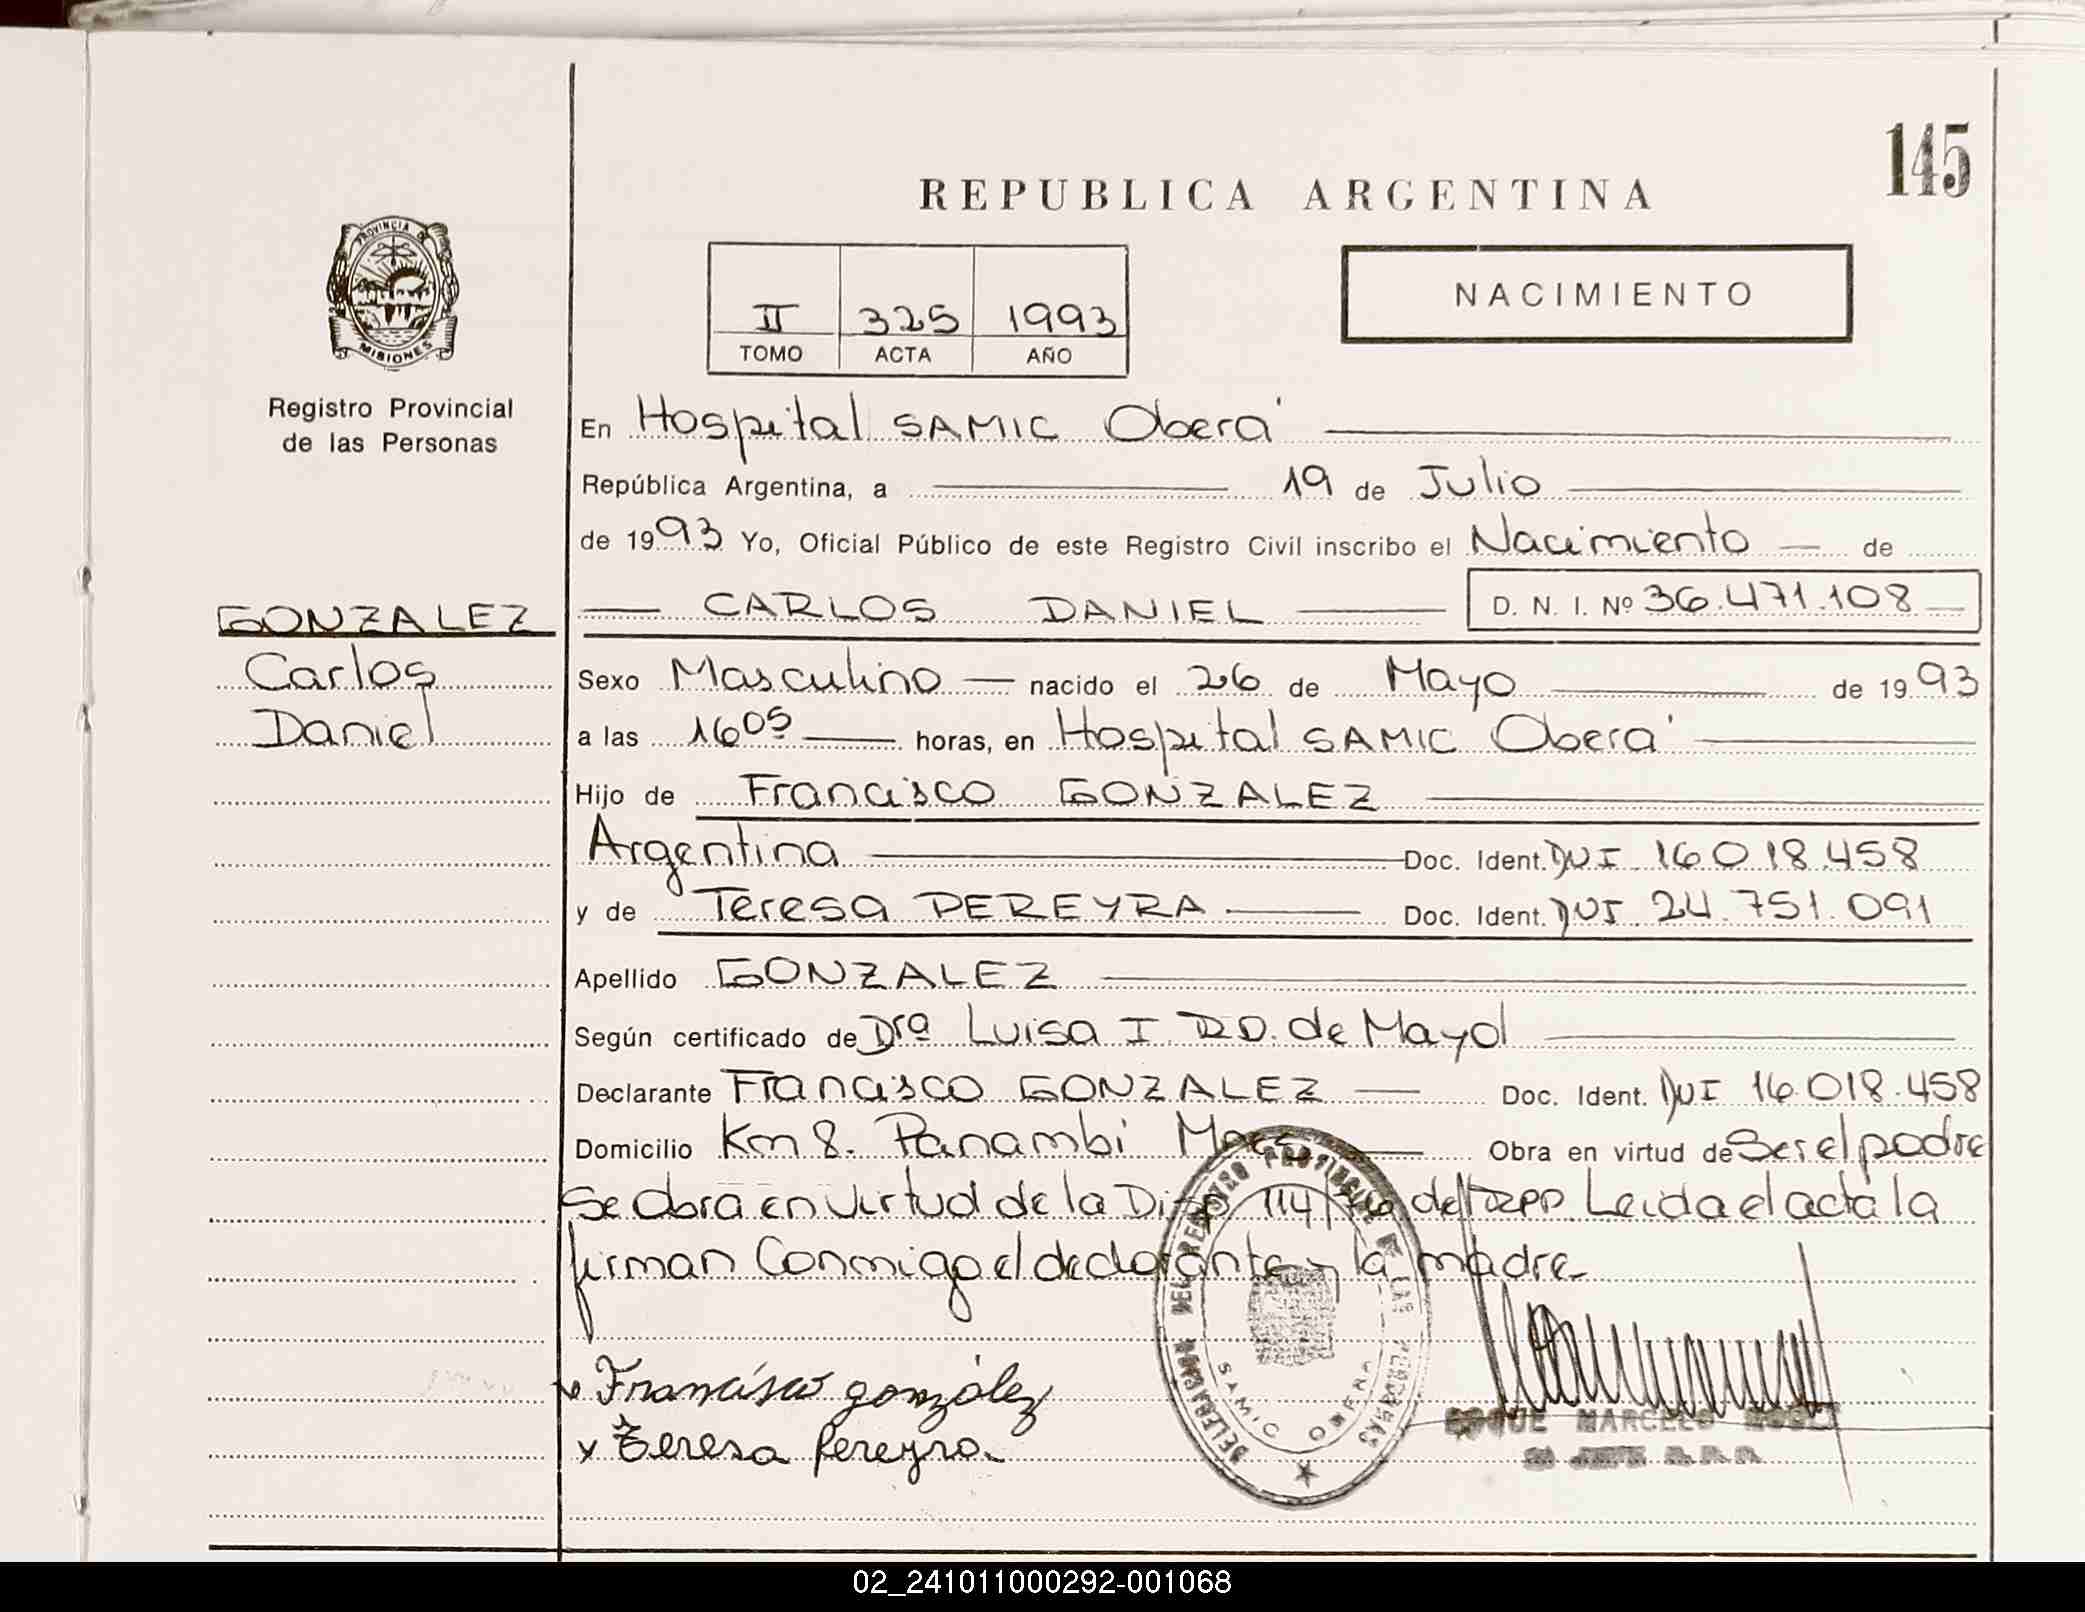 145
REPUBLICA ARGENTINA
PROVINCIA DE
MISIONES
II 325 1993
TOMO ACTA AÑO
NACIMIENTO
Registro Provincial
de las Personas
En Hospital SAMIC Oberá
República Argentina, a 19 de Julio
de 1993 Yo, Oficial Público de este Registro Civil inscribo el Nacimiento de
GONZALEZ
Carlos
Daniel
CARLOS DANIEL D. N. I. Nº 36.471.108
Sexo Masculino nacido el 26 de Mayo de 1993
a las 16 05 horas, en Hospital SAMIC Oberá
Hijo de Francisco GONZALEZ
Argentina Doc. Ident. DNI 16.018.458
y de Teresa PEREYRA Doc. Ident. DNI 24.751.091
Apellido GONZALEZ
Según certificado de Dra Luisa I. R.D. de Mayol
Declarante Francisco GONZALEZ Doc. Ident. DNI 16.018.458
Domicilio Km 8. Panambi Obra en virtud de Ser el padre
Se obra en virtud de la Disp. 114/ del RPP. Leida el acta la
firman Conmigo el declarante y la madre
Francisco gonzález
x Teresa Pereyra
DEL REGISTRO PROVINCIAL DE LAS PERSONAS
SAMIC OBERA
ROQUE MARCELO
02_241011000292-001068